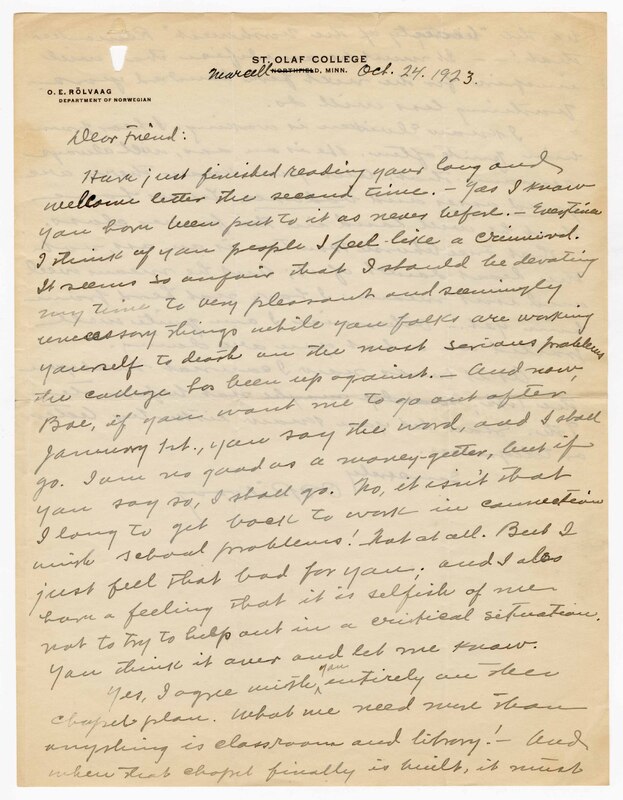 ST. OLAF COLLEGE
Marcell NORTHFIELD, MINN. Oct. 24. 1923.
O. E. RÖLVAAG
DEPARTMENT OF NORWEGIAN
Dear Friend:
Have just finished reading your long and
wellcome letter the second time. – Yas I know
you have been put to it as never before. – Everytime
I think of you people I feel like a criminal.
It seems so unfair that I should be devoting
my time to very pleasant and seemingly
unecessary things while you folks are working
yourself to death on the most serious problems
the college has been up against. – And now,
Boe, if you want me to go out after
January 1st., you say the word, and I shall
go. I am no good as a money-getter, but if
you say so, I shall go. No, it isn't that
I long to get back to work in connection
with school problems! Not at all. But I
just feel that bad for you, and I also
have a feeling that it is selfish of me
not to try to help out in a critical situation.
You think it over and let me know.
Yes, I agree with you entirely on the
chapel plan. What we need more than
anything is classroom and library! – And
when that chapel finally is built, it must